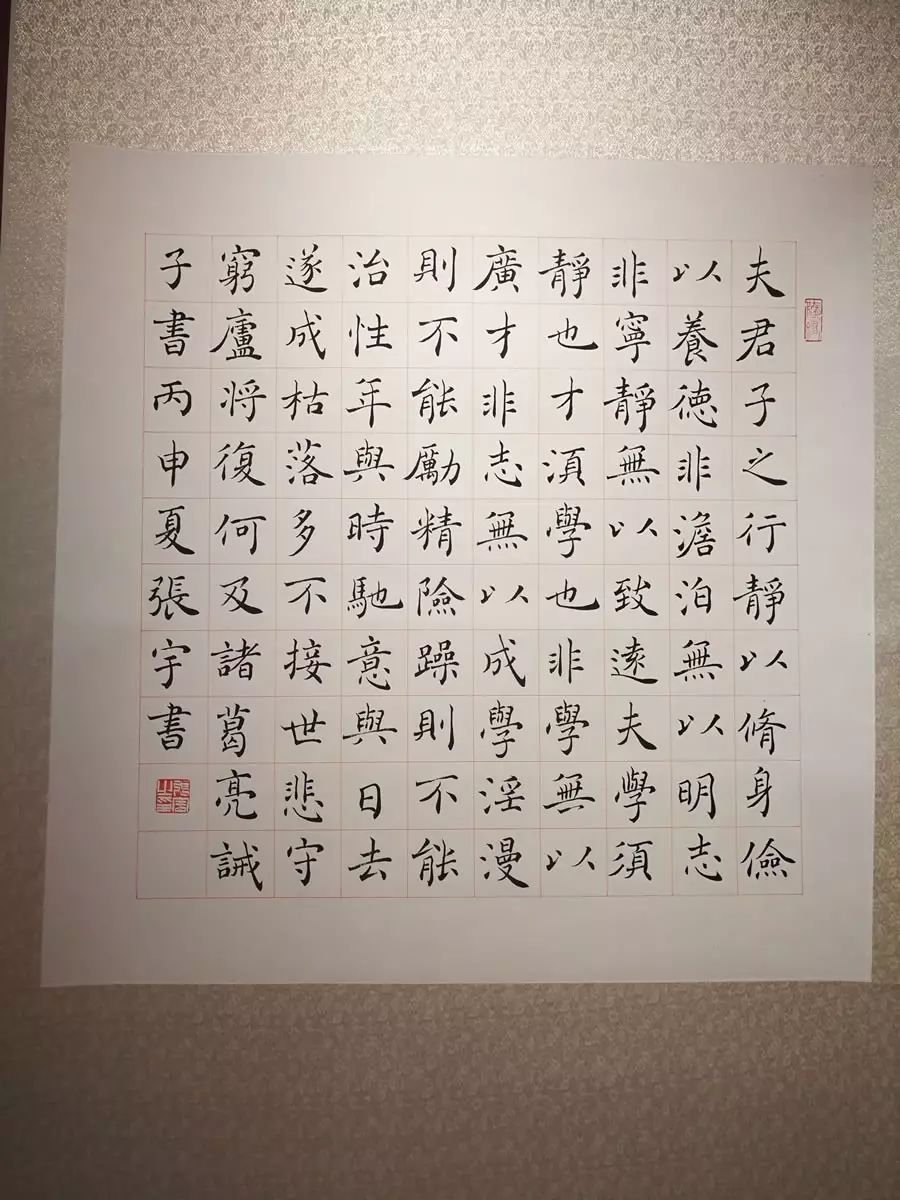 夫君子之行靜以脩身儉
以養德非澹泊無以明志
非寧靜無以致遠夫學須
靜也才須學也非學無以
廣才非志無以成學淫漫
則不能勵精險躁則不能
治性年與時馳意與日去
遂成枯落多不接世悲守
窮廬將復何及諸葛亮誡
子書丙申夏張宇書